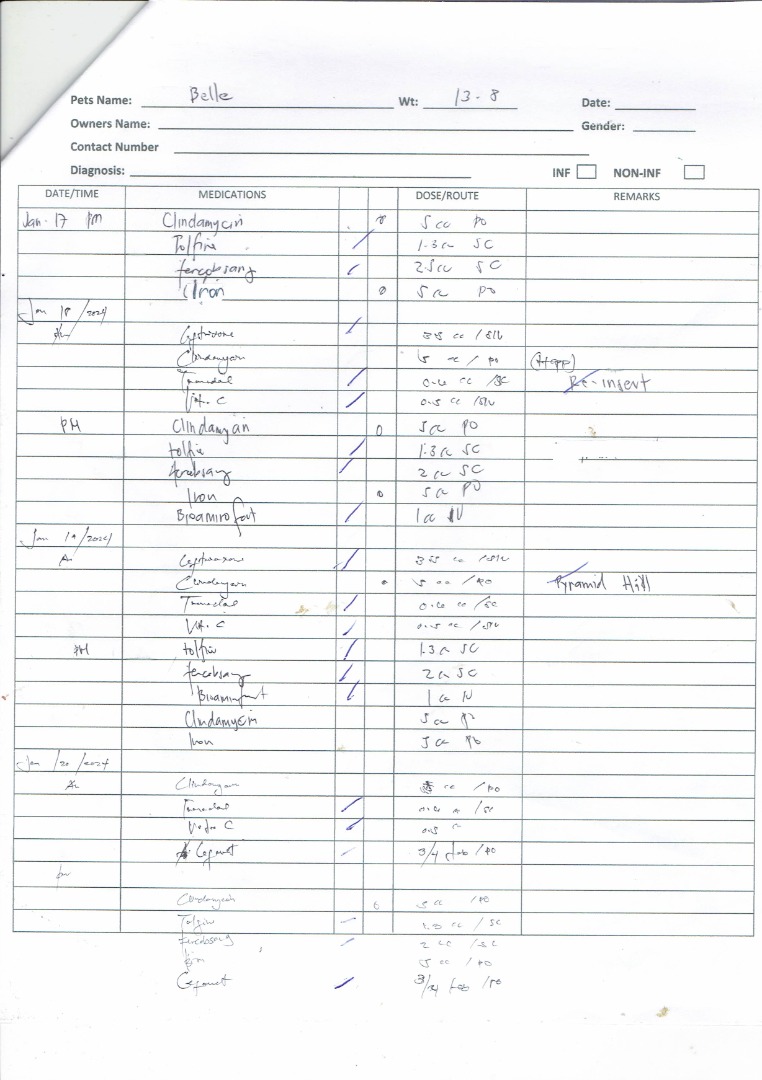 Pets Name: Belle Wt: 13-8 Date:
Owners Name: Gender:
Contact Number
Diagnosis: INF NON-INF
DATE/TIME MEDICATIONS DOSE/ROUTE REMARKS
Jan. 17 PM Clindamycin 5 cc PO
Tolfine 1.3 cc SC
fercobsang 2.5cc SC
Iron 5 cc PO
Jan 18/2024
5 cc / PO
Tramadol 0.4 cc /SC Re-insert
Vit. C 0.5 cc /SIV
PM Clindamycin 5 cc PO
tolfine 1.3 cc SC
fercobsang 2 cc SC
Iron 5 cc PO
Bioamin fort 1 cc IV
Jan 19/2024
Ceftriaxone 3.5 cc /SIV
Clindamycin 5 cc / PO Pyramid Hill
Tramadol 0.4 cc /SC
Vit. C 0.5 cc /SIV
PM tolfine 1.3 cc SC
fercobsang 2 cc SC
Bioamin fort 1 cc IV
Clindamycin 5 cc PO
Iron 5 cc PO
Jan /20 /2024
Clindamycin cc /PO
Tramadol 0.4 cc / SC
C 0.5 cc
3/4 tab /PO
Clindamycin 5 cc /PO
Tolfine cc / SC
fercobsang 2 cc /SC
Iron 5 cc / PO
3/4 tab /PO